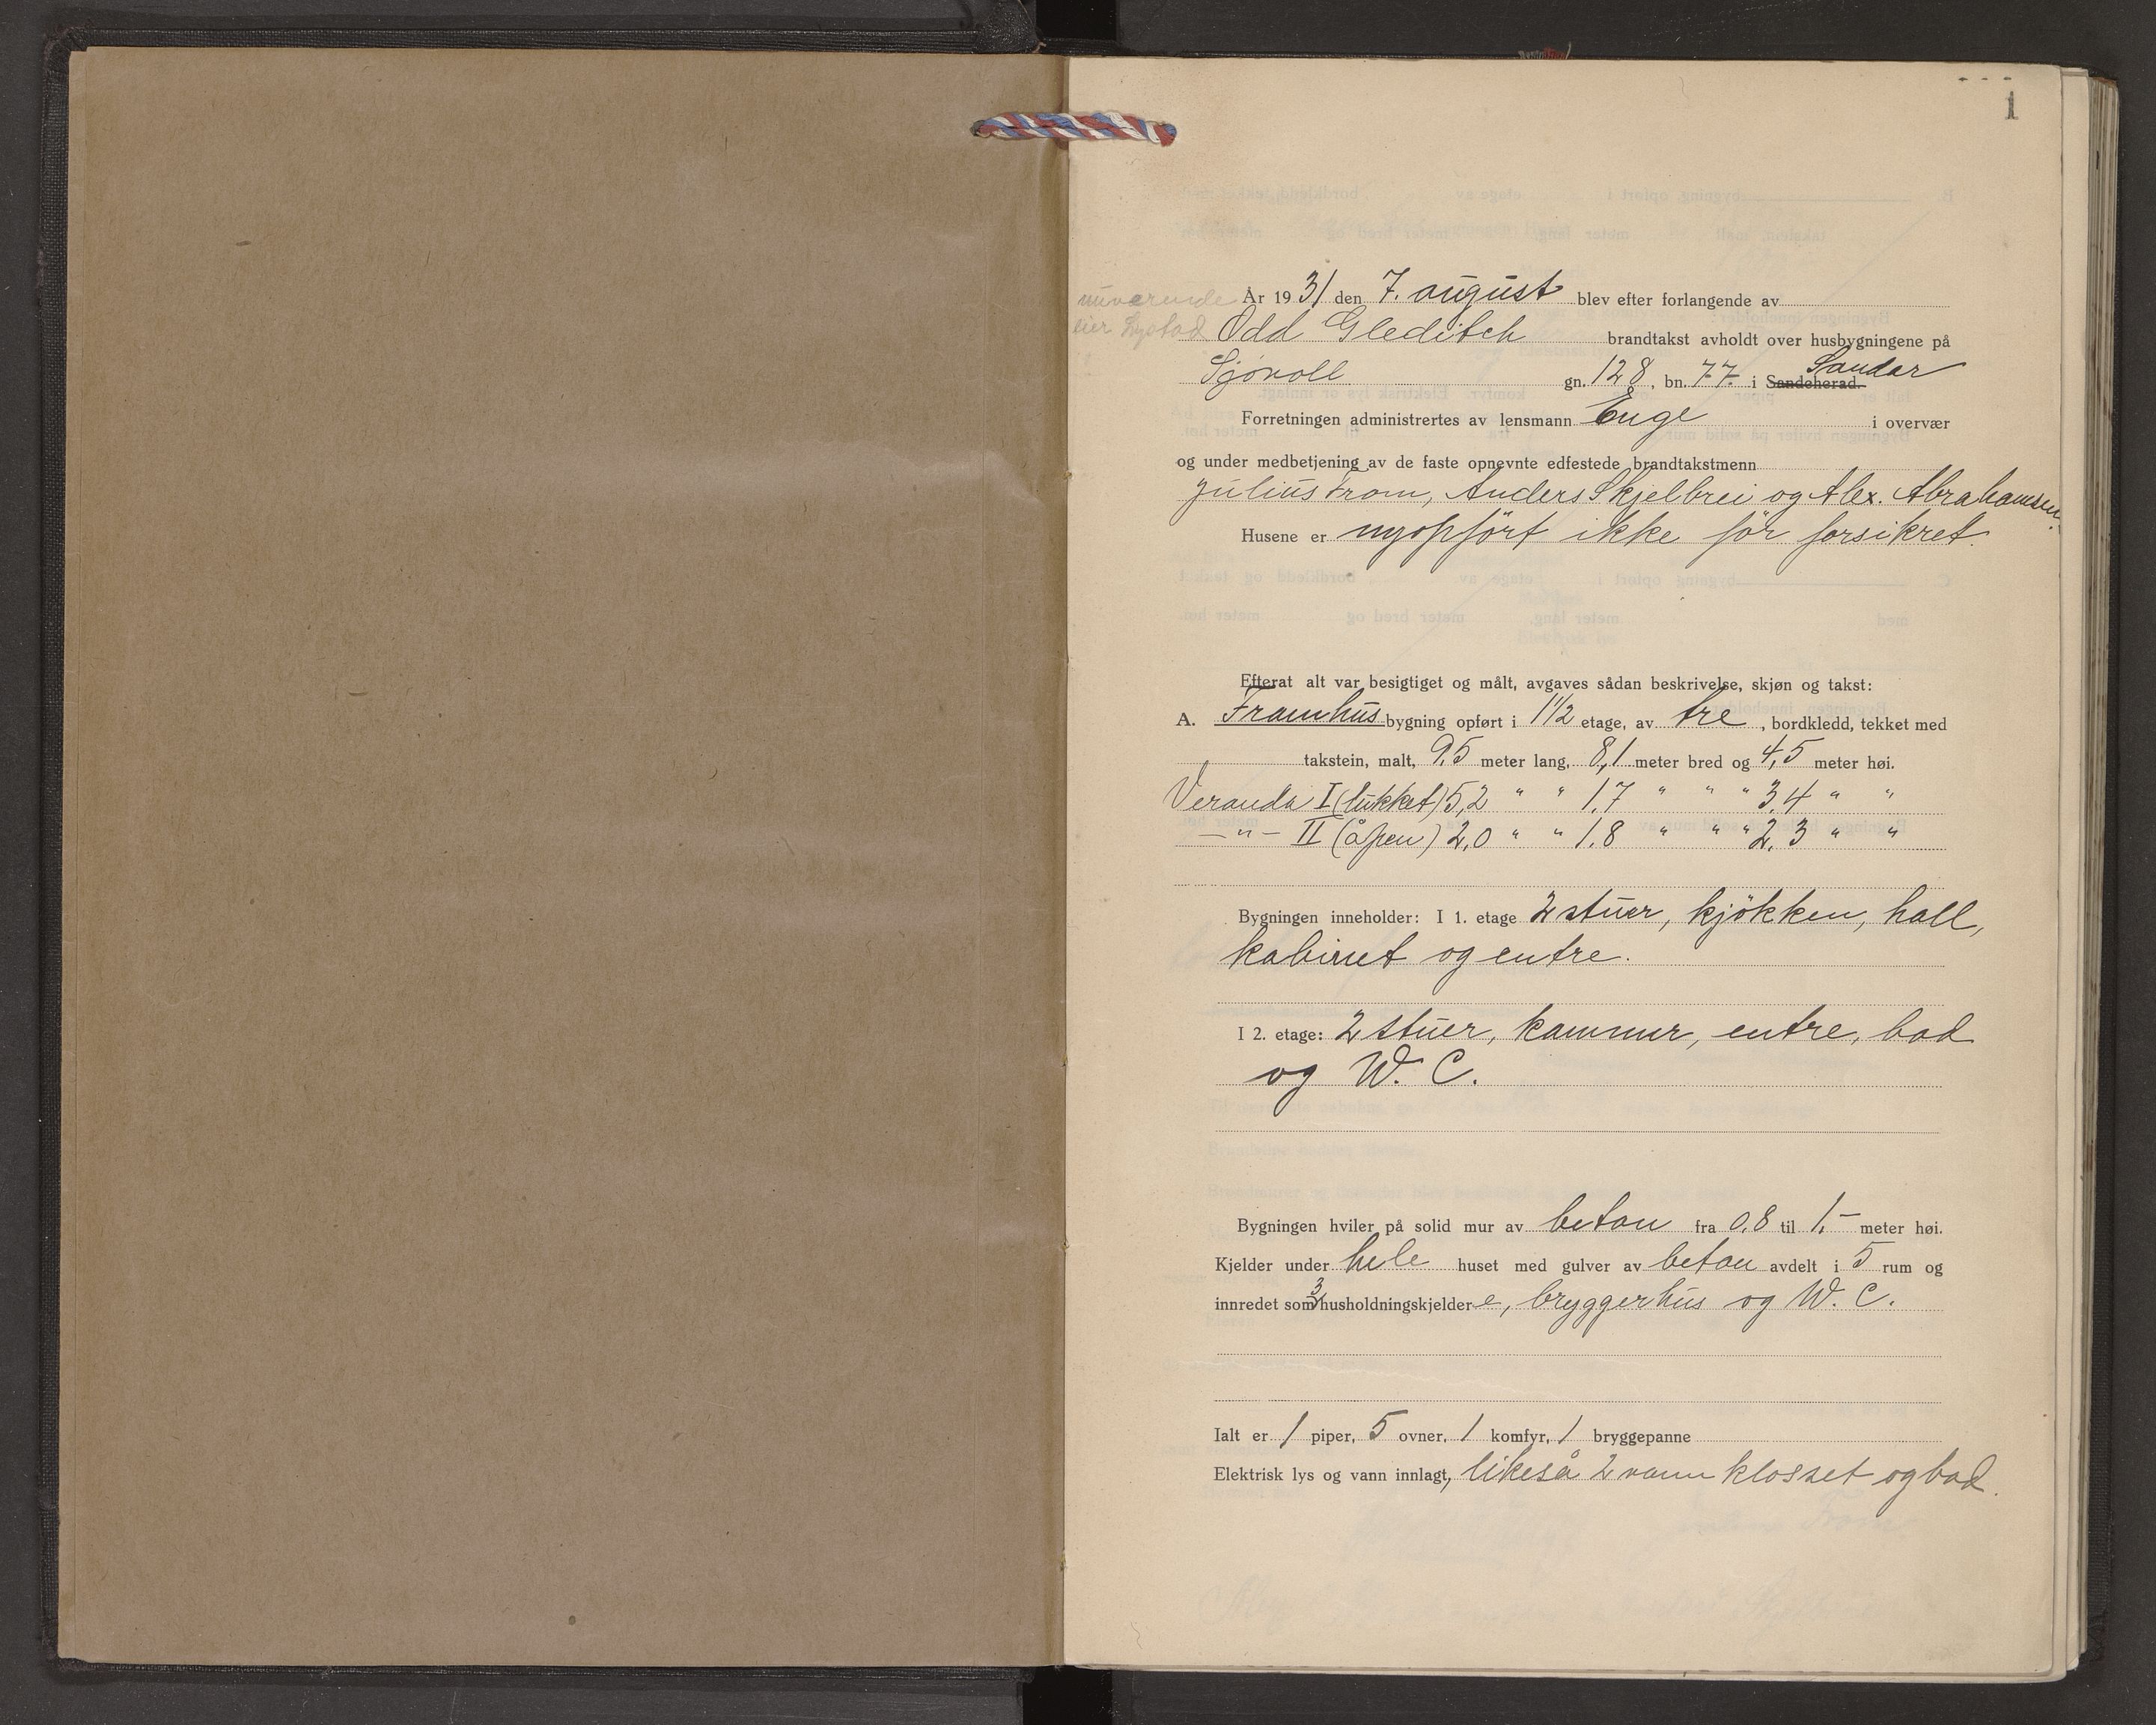 1
År 1931 den 7. august blev efter forlangende av
nuværende
eier
Odd Gleditch brandtakst avholdt over husbygningene på
Sjøvoll gn. 128, bn. 77. i Sandeherad. Sandar
Forretningen administrertes av lensmann Enge i overvær
og under medbetjening av de faste opnevnte edfestede brandtakstmenn
Julius From, Anders Skjelbrei og Alex. Abrahamsen.
Husene er nyopført ikke før forsikret.
Efterat alt var besigtiget og målt, avgaves sådan beskrivelse, skjøn og takst:
A. Framhusbygning opført i 1 1/2 etage, av tre, bordkledd, tekket med
takstein, malt, 9,5 meter lang, 8,1 meter bred og 4,5 meter høi.
Veranda I (lukket) 5,2 " " 1,7 " " " 3,4 " "
— " — II (åpen) 2,0 " " 1,8 " " " 2,3 " "
Bygningen inneholder: I 1. etage 2 stuer, kjøkken, hall,
kabinet og entre.
I 2. etage: 2 stuer, kammer, entre, bad
og W. C.
Bygningen hviler på solid mur av betou fra 0,8 til 1,- meter høi.
Kjelder under hele huset med gulver av betou avdelt i 5 rum og
innredet som 3 husholdningskjeldere, bryggerhus og W. C.
Ialt er 1 piper, 5 ovner, 1 komfyr, 1 bryggepanne
Elektrisk lys og vann innlagt, likeså 2 vann klosset og bad.